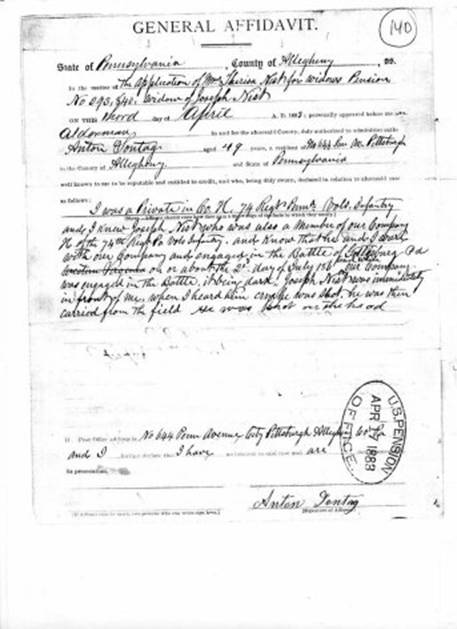 140
GENERAL AFFIDAVIT.
State of Pennsylvania, County of Allegheny, ss.
In the matter of the application of Mrs Theresa Nist for widows Pension
No 293,842. Widow of Joseph Nist
ON THIS third day of April A. D. 1883; personally appeared before me
Alderman in and for the aforesaid County, duly authorized to administer oaths
Anton Dontag aged 49 years, a resident of No 644 Penn Av. Pittsburgh
in the County of Allegheny and State of Pennsylvania
well known to me to be reputable and entitled to credit, and who, being duly sworn, declared in relation to aforesaid case
as follows:
I was a Private in Co. H. 74 Regt Penna Vols. Infantry
and I knew Joseph Nist, who was also a Member of our Company
H of the 74th Regt Pa Vols Infantry, and know that he and I were
with our Company and engaged in the Battle of Gettysburg Pa
on or about the day of July our Company
was engaged in the Battle, it being dark. Joseph Nist was immediately
in front of me, when I heard him cry he was shot, he was then
carried from the field he was shot on the head
U.S. PENSION
APR 17 1883
OFFICE.
Post Office address is No 644 Penn Avenue City Pittsburgh Allegheny Co Pa
and I further declare that I have no interest in said case and are
its prosecution.
Anton Dontag
[Signature of Affiant.]